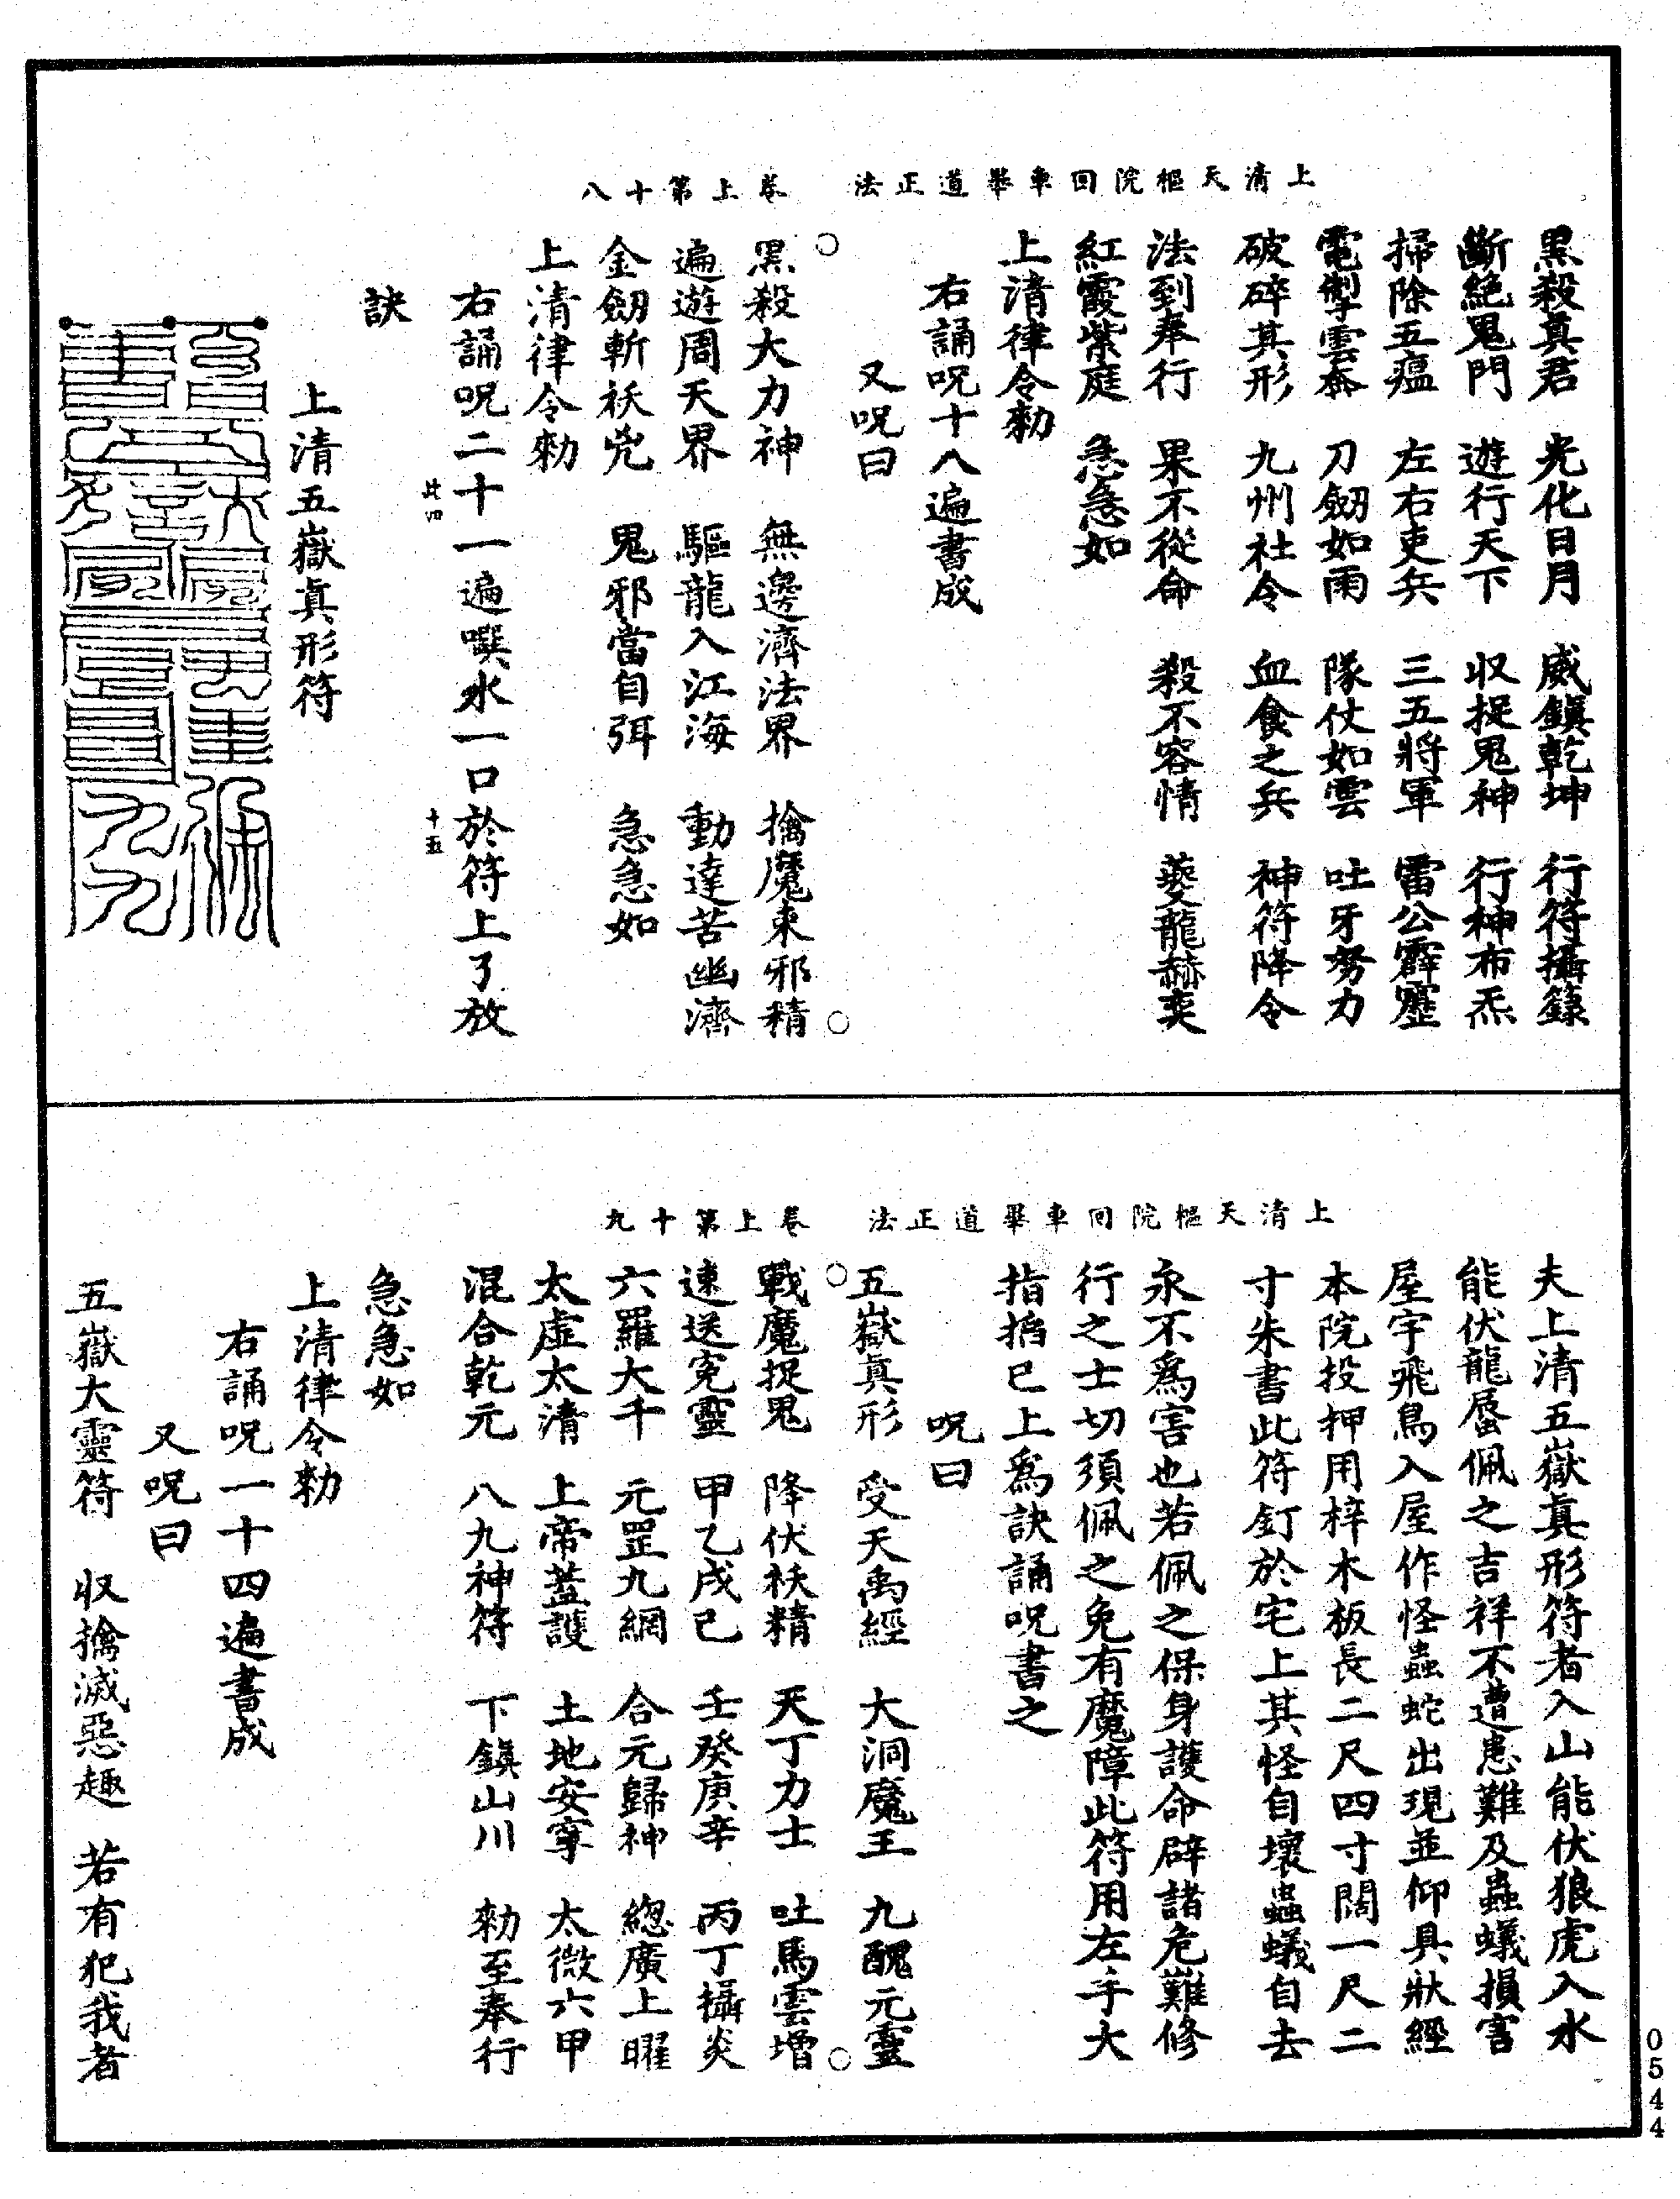 上清天樞院回車畢道正法　卷上第十八
黑殺真君　光化日月　威鎮乾坤　行符攝籙
斷絕鬼門　遊行天下　収捉鬼神　行神布炁
掃除五瘟　左右吏兵　三五將軍　雷公霹靂
電掣雲奔　刀劒如雨　隊仗如雲　吐牙努力
破碎其形　九州社令　血食之兵　神符降令
法到奉行　果不從命　殺不容情　夔龍赫奕
紅霞紫庭　急急如
上清律令勑
右誦呪十八遍書成
又呪曰
黑殺大力神　無邊濟法界　擒魔束邪精
遍遊周天界　驅龍入江海　動達苦幽濟
金劒斬祅兇　鬼邪當自弭　急急如
上清律令勑
右誦呪二十一遍噀水一口於符上了放
訣
上清五嶽真形符
上清天樞院回車畢道正法　卷上第十九
夫上清五嶽真形符者入山能伏狼虎入水
能伏龍蜃佩之吉祥不遭患難及蟲蟻損害
屋宇飛鳥入屋作怪蟲蛇出現並仰具狀經
本院投押用梓木板長二尺四寸闊一尺二
寸朱書此符釘於宅上其怪自壞蟲蟻自去
永不爲害也若佩之保身護命辟諸危難修
行之士切須佩之免有魔障此符用左手大
指掐巳上爲訣誦呪書之
呪曰
五嶽真形　受天禹經　大洞魔王　九醜元靈
戰魔捉鬼　降伏祅精　天丁力士　吐馬雲增
速送寃靈　甲乙戊己　壬癸庚辛　丙丁攝炎
六羅大千　元罡九網　合元歸神　緫廣上曜
太虛太清　上帝蓋護　土地安寧　太微六甲
混合乾元　八九神符　下鎮山川　勑至奉行
急急如
上清律令勑
右誦呪一十四遍書成
又呪曰
五嶽大靈符　収擒滅惡趣　若有犯我者
0544